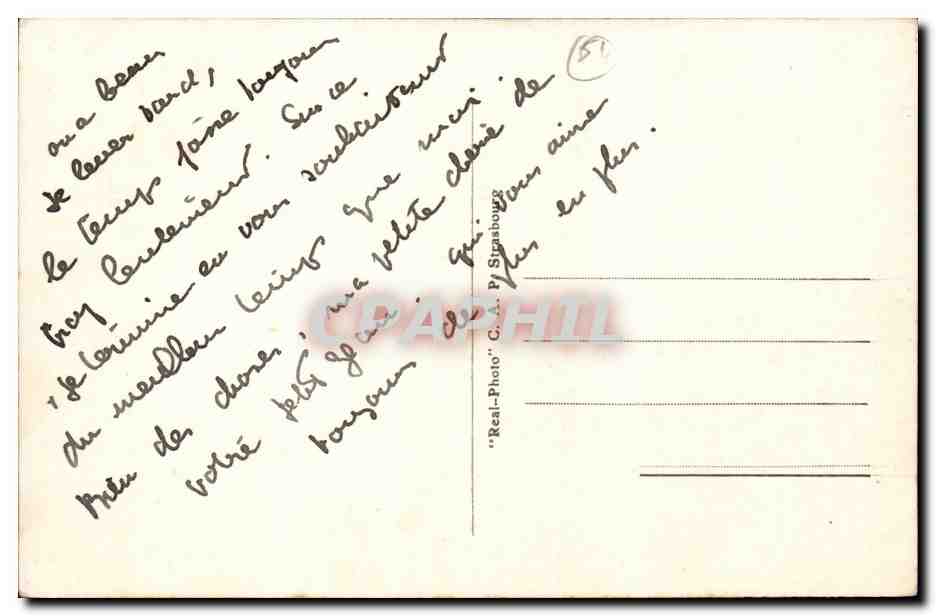 on a beau
se lever tard,
le temps passe toujours
trop lentement. Sur ce
je termine en vous souhaitant
du meilleur temps que moi
bien des choses, ma petite chérie de
votre petit Jean qui vous aime
toujours de plus en plus.
51
"Real-Photo" C. A. P. Strasbourg
CPAPHIL